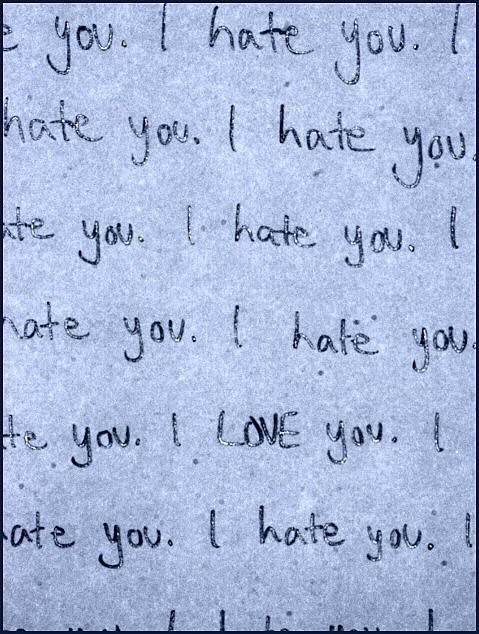 you. I hate you. I
hate you. I hate you.
you. I hate you. I
hate you. I hate you.
you. I LOVE you. I
hate you. I hate you. I